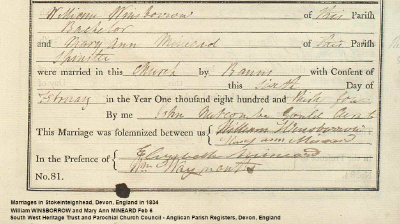 William Winsborrow of this Parish
Bachelor
and Mary Ann Minead of this Parish
Spinster
were married in this Church by Banns with Consent of
this Sixth Day of
February in the Year One thousand eight hundred and thirty four
By me John
This Marriage was solemnized between us William Winsborrow
Mary ann
In the Presence of Elizabeth
No. 81.
Marriages in Stokeinteignhead, Devon, England in 1834
William WINSBORROW and Mary Ann MINEARD Feb 6
South West Heritage Trust and Parochial Church Council - Anglican Parish Registers, Devon, England